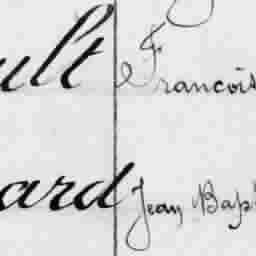 ult François
ard Jean Bap